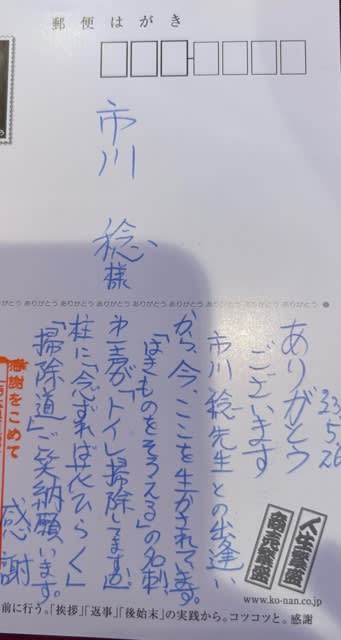 郵便はがき
市川
稔様
ありがとう ありがとう ありがとう ありがとう ありがとう ありがとう ありがとう
ありがとう
ございます
23.5.26
市川稔先生との出逢い
から、今、ここを生かされています。
「はきものをそろえる」の名刺、
「トイレ掃除してますか」
柱に「念ずれば花ひらく」
「掃除道」ご笑納願います。
感謝
感謝をこめて
人生繁盛
商売繁盛
www.ko-nan.co.jp
前に行う。「挨拶」「返事」「後始末」の実践から。コツコツと。感謝